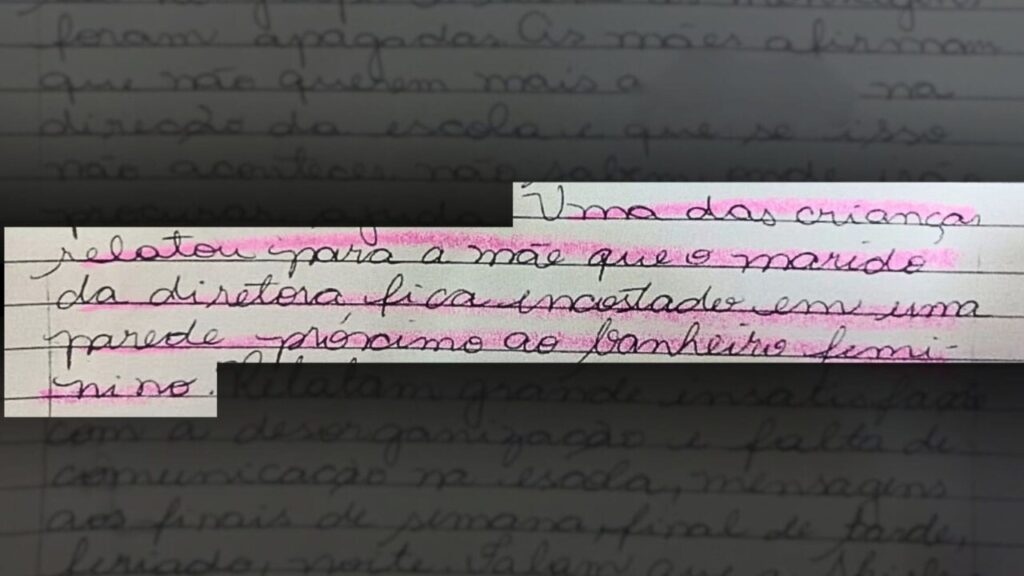 foram apagadas. As mães afirmam
que não querem mais a na
direção da escola e que se isso
não acontecer não sabem onde irão
procurar ajuda. Uma das crianças
relatou para a mãe que o marido
da diretora fica encostado em uma
parede próximo ao banheiro femi-
nino. Relatam grande insatisfação
com a desorganização e falta de
comunicação na escola, mensagens
aos finais de semana, final de tarde,
feriado, noite. Falam que a